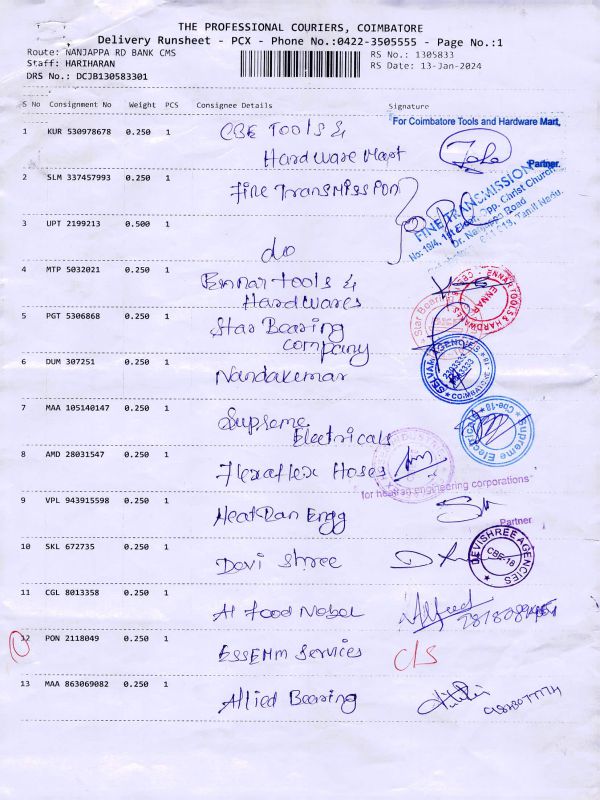 THE PROFESSIONAL COURIERS, COIMBATORE
Delivery Runsheet - PCX - Phone No.:0422-3505555 - Page No.:1
Route: NANJAPPA RD BANK CMS
RS No.: 1305833
Staff: HARIHARAN
RS Date: 13-Jan-2024
DRS No.: DCJB130583301
S No Consignment No Weight PCS Consignee Details Signature
For Coimbatore Tools and Hardware Mart,
1 KUR 530978678 0.250 1 CBE Tools &
Hardware Mart
Partner.
2 SLM 337457993 0.250 1 Fine Transmission
FINE TRANSMISSION
No: 19/4, 1st Floor, Opp. Christ Church
Dr. Nanjappa Road
Tamil Nadu.
3 UPT 2199213 0.500 1
do
4 MTP 5032021 0.250 1 Ennar tools &
Hardwares
ENNAR TOOLS & HARDWARES
5 PGT 5306868 0.250 1 Star Bearing
Company
Star Bearing
6 DUM 307251 0.250 1 Nandakumar
SELVAA AGENCIES
COIMBATORE-18
7 MAA 105140147 0.250 1 Supreme
Electricals
Supreme Electricals
Cbe-18
8 AMD 28031547 0.250 1 Flexaflex Hoses
for heatran engineering corporations
9 VPL 943915598 0.250 1 HeatRan Engg
Partner
10 SKL 672735 0.250 1 Devi Shree
DEVISHREE AGENCIES
CBE-18
11 CGL 8013358 0.250 1 Al Food Nobel
12 PON 2118049 0.250 1 ESSEMM Services C/S
13 MAA 863069082 0.250 1 Allied Bearing